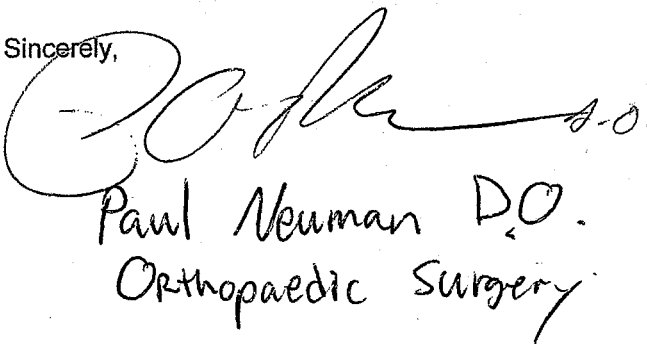 Sincerely,
D.O.
Paul Neuman D.O.
Orthopaedic Surgery